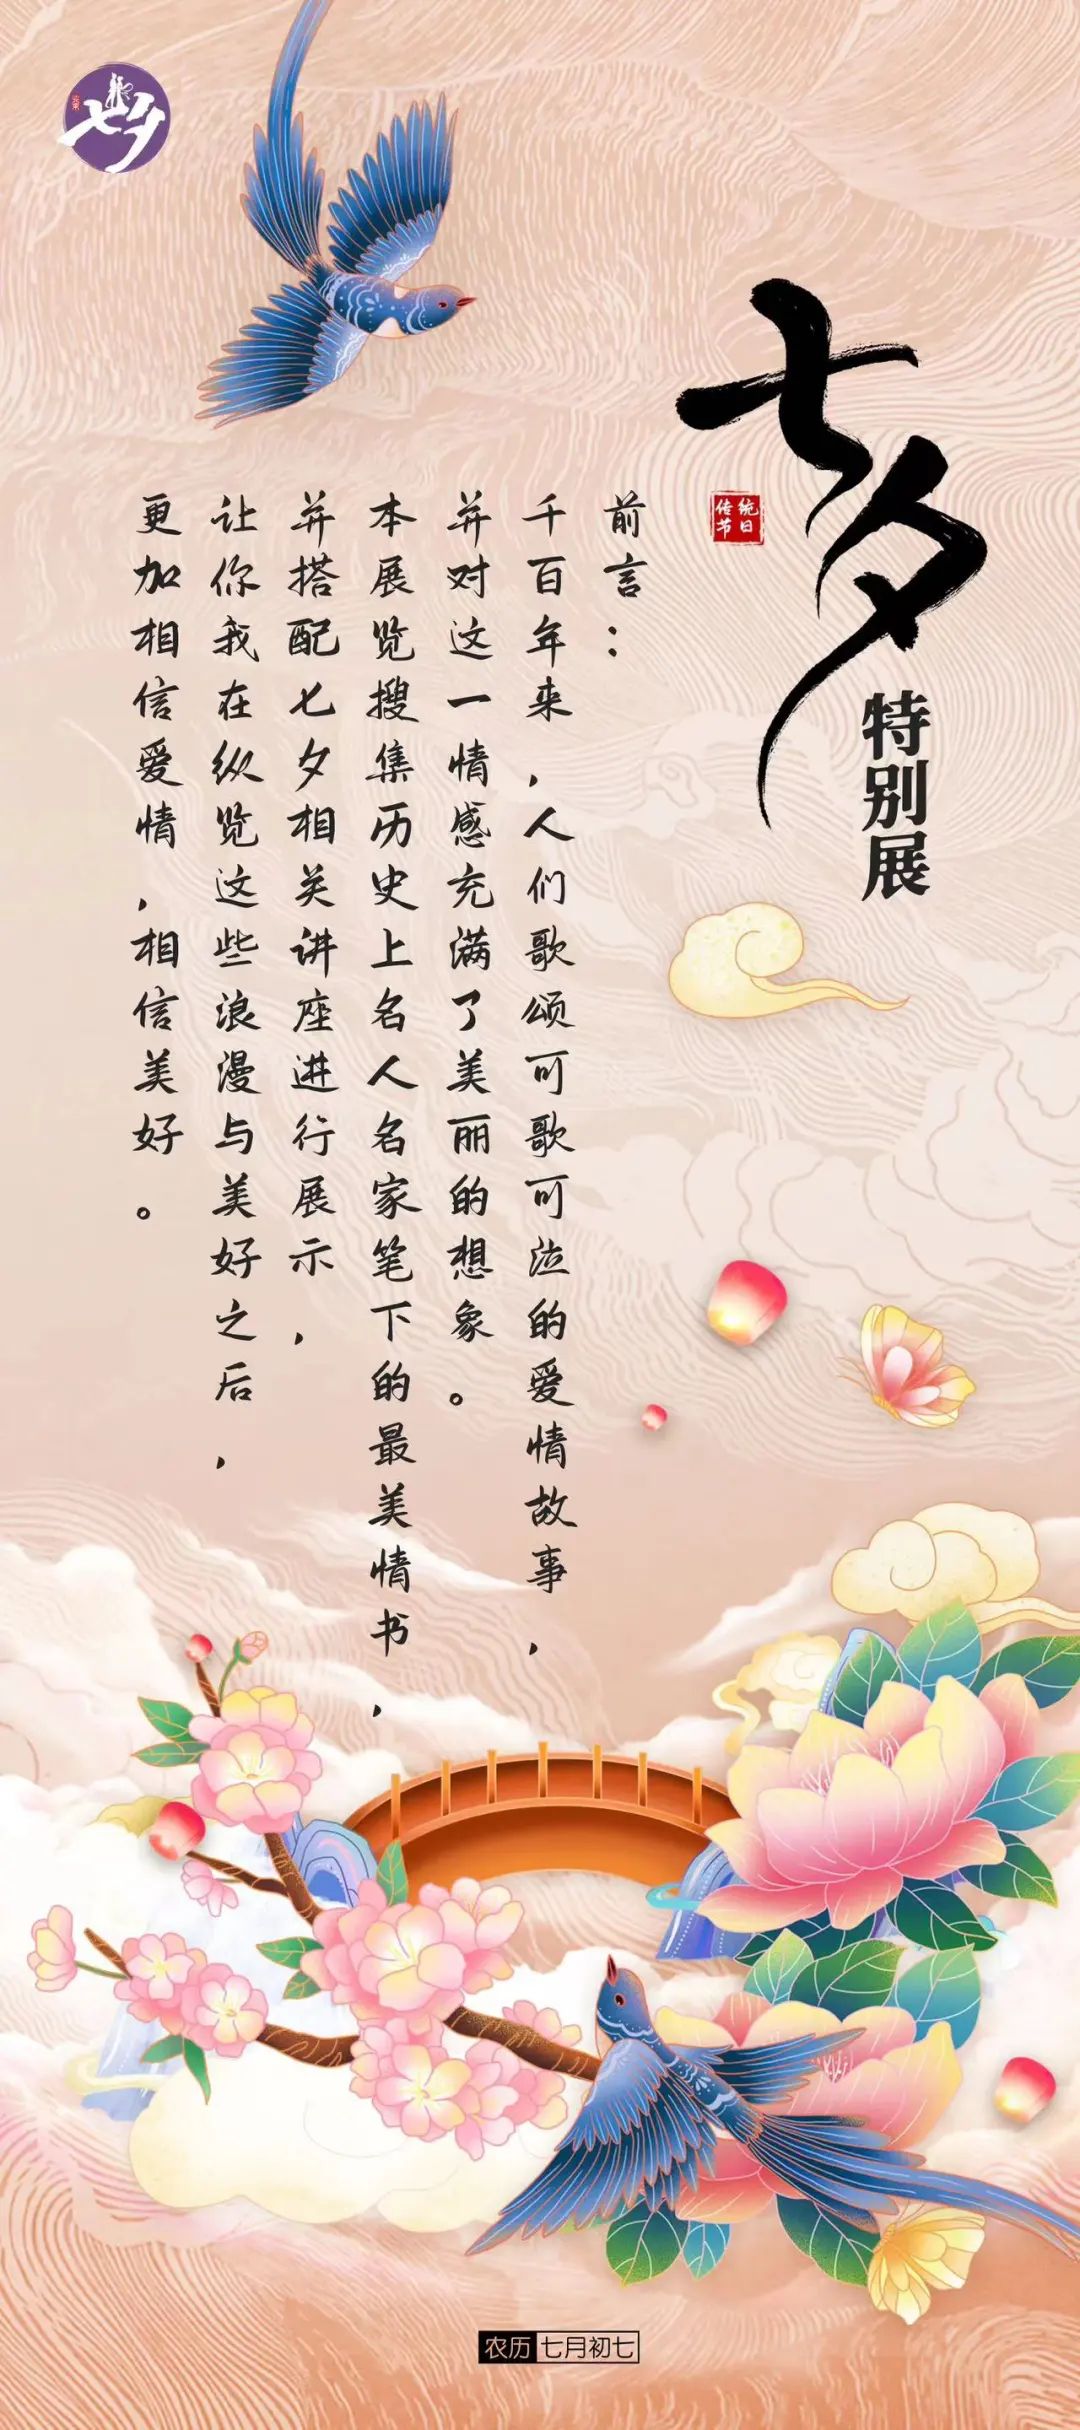 七夕
七夕
传统
节日
特别展
前言：
千百年来，人们歌颂可歌可泣的爱情故事，
并对这一情感充满了美丽的想象。
本展览搜集历史上名人名家笔下的最美情书，
并搭配七夕相关讲座进行展示，
让你我在纵览这些浪漫与美好之后，
更加相信爱情，相信美好。
农历 七月初七